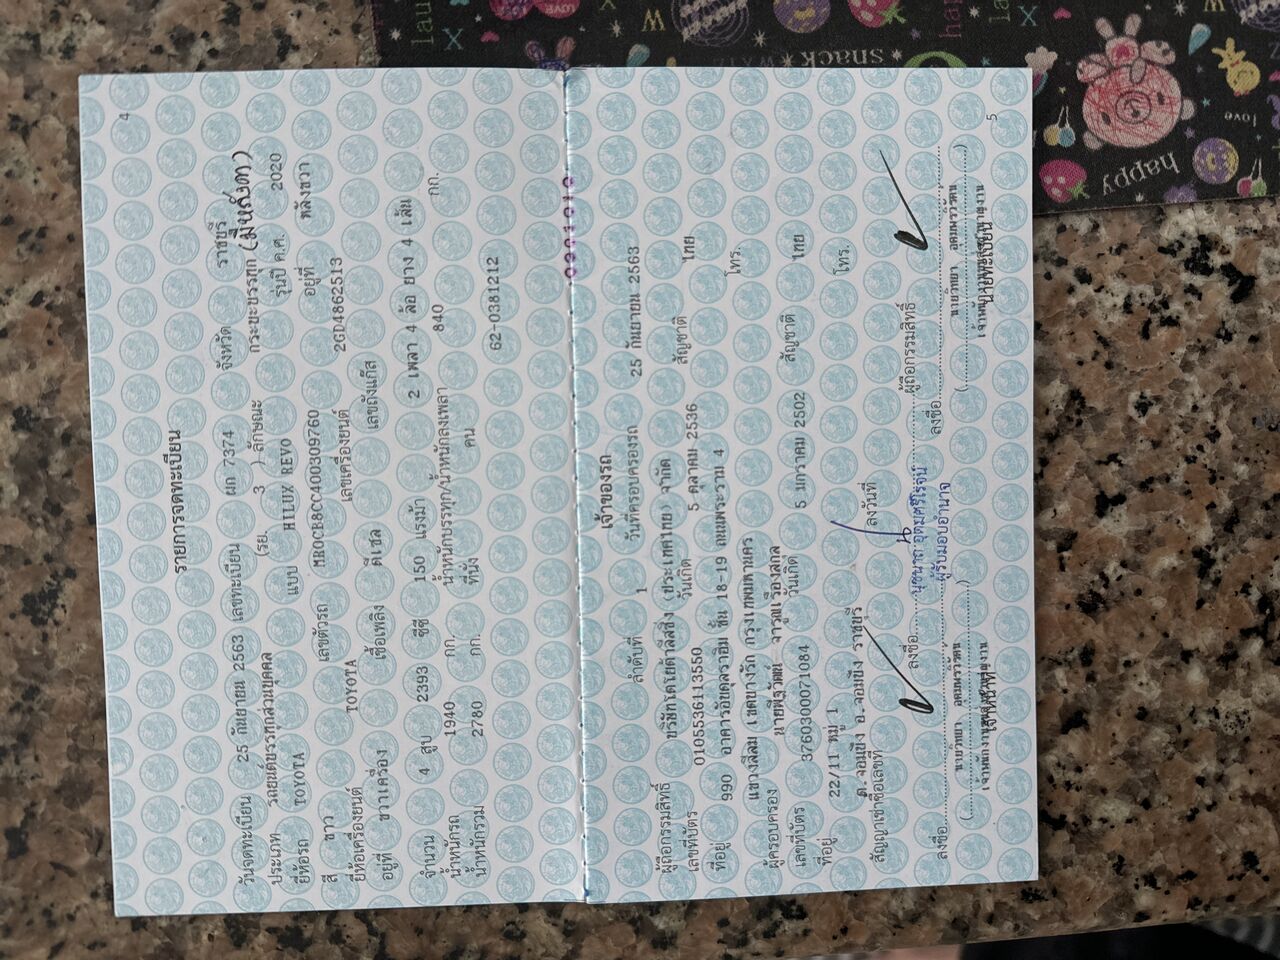 4
รายการจดทะเบียน
วันจดทะเบียน 25 กันยายน 2563 เลขทะเบียน ผก 7374 จังหวัด ราชบุรี
ประเภท รถยนต์บรรทุกส่วนบุคคล (รย. 3 ) ลักษณะ กระบะบรรทุก (มีหลังคา)
ยี่ห้อรถ TOYOTA แบบ HILUX REVO รุ่นปี ค.ศ. 2020
สี ขาว เลขตัวรถ MR0CB8CC400309760 อยู่ที่ หลังขวา
ยี่ห้อเครื่องยนต์ TOYOTA เลขเครื่องยนต์ 2GD4862513
อยู่ที่ ขวาเครื่อง เชื้อเพลิง ดีเซล เลขถังแก๊ส
จำนวน 4 สูบ 2393 ซีซี 150 แรงม้า 2 เพลา 4 ล้อ ยาง 4 เส้น
น้ำหนักรถ 1940 กก. น้ำหนักบรรทุก/น้ำหนักลงเพลา 840 กก.
น้ำหนักรวม 2780 กก. ที่นั่ง คน
62-0381212
เจ้าของรถ
ลำดับที่ 1 วันที่ครอบครองรถ 25 กันยายน 2563
ผู้ถือกรรมสิทธิ์ บริษัทโตโยต้าลีสซิ่ง (ประเทศไทย) จำกัด สัญชาติ ไทย
เลขที่บัตร 0105536113550 วันเกิด 5 ตุลาคม 2536
ที่อยู่ 990 อาคารอับดุลราฮิม ชั้น 18-19 ถนนพระราม 4 โทร.
แขวงสีลม (เขตบางรัก กรุงเทพมหานคร
ผู้ครอบครอง
เลขที่บัตร 3760300071084 วันเกิด 5 มกราคม 2502 สัญชาติ ไทย
ที่อยู่ 22/11 หมู่ 1 โทร.
ต.จอมบึง อ.จอมบึง ราชบุรี
สัญญาเช่าซื้อเลขที่ ลงวันที่
ลงชื่อ ผู้ถือกรรมสิทธิ์
ผู้รับมอบอำนาจ
ลงชื่อ ลงชื่อ
นายทะเบียน
5